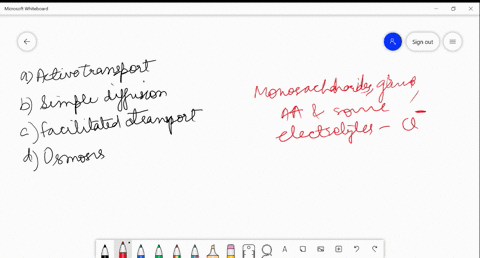 Microsoft Whiteboard
Sign out
a) Active transport
b) Simple diffusion
c) facilitated transport
d) Osmosis
Monosaccharides,
AA & some
electrolytes - Cl⁻